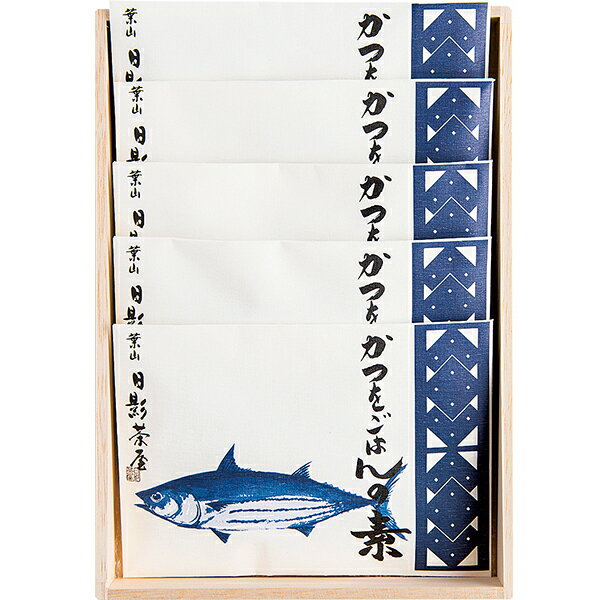 かつを
葉山 日影
かつを
葉山 日影
かつを
葉山 日
かつを
葉山 日影
かつをごはんの素
葉山 日影茶屋